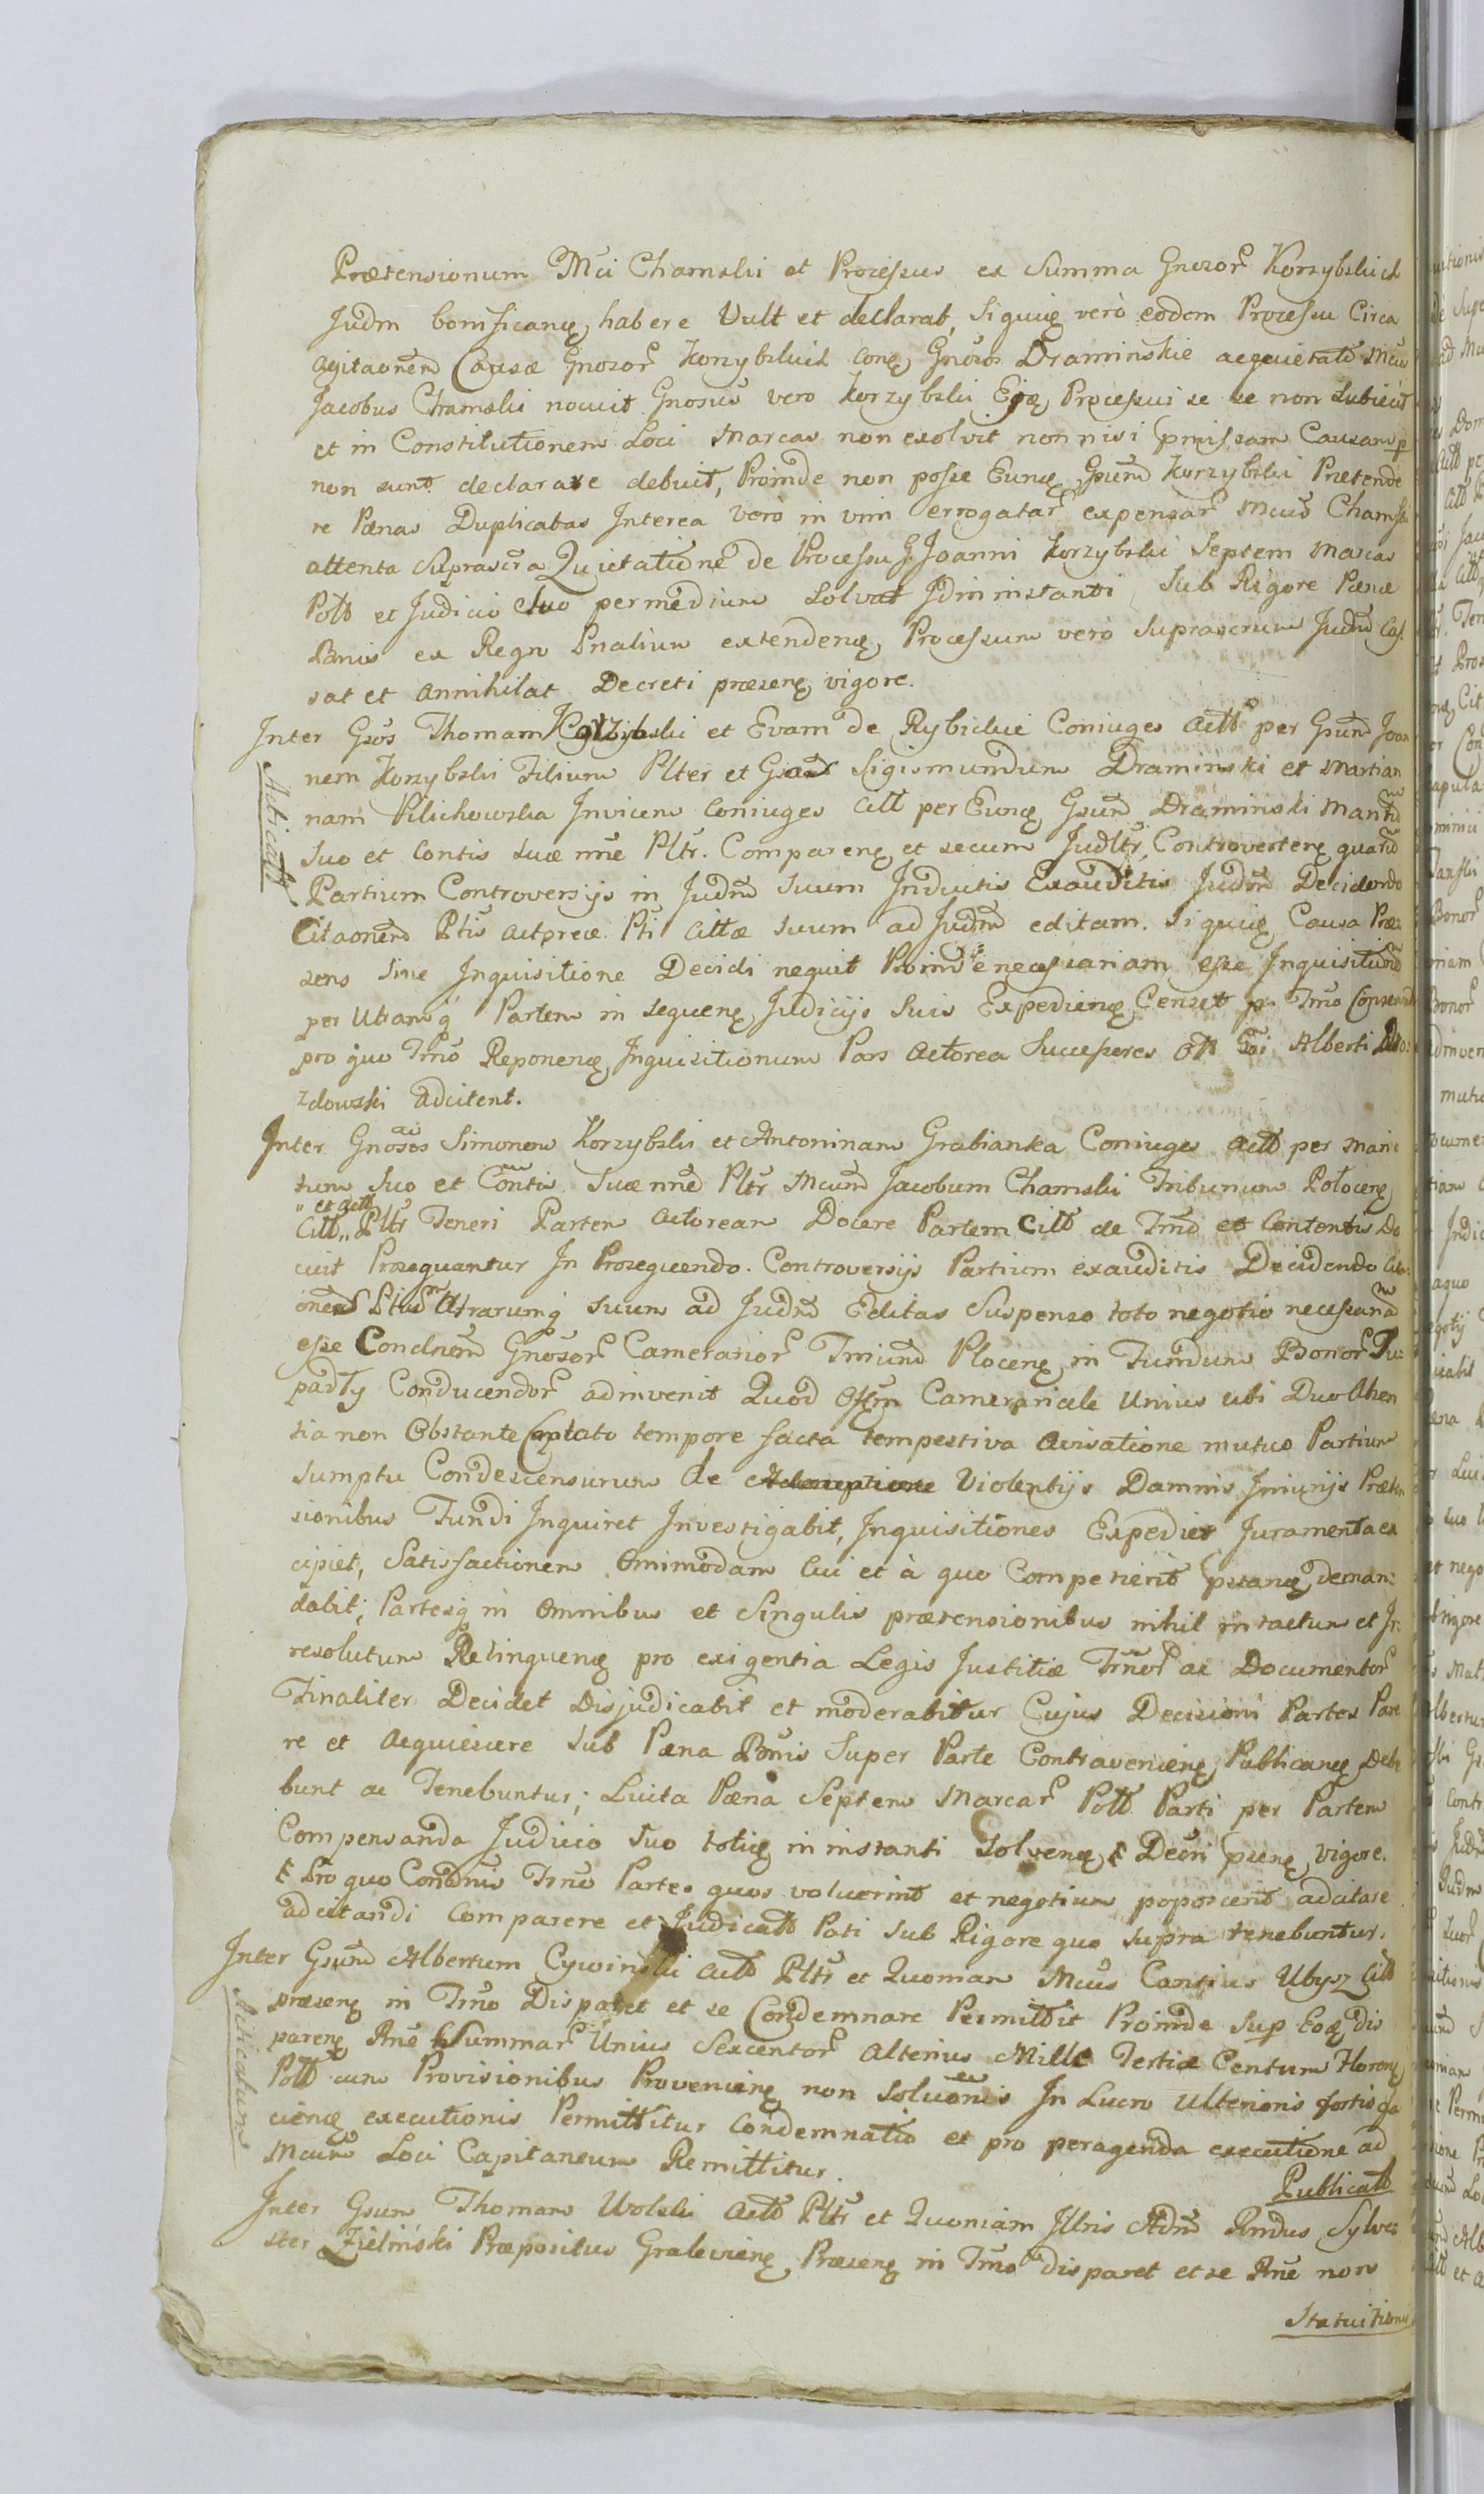 Prætensionum Mci Chamski et Processus ex Summa Gnosor Korzybskich
Judm bonificang habere Vult et declarat, Siquig verò eodem Processu Circa
agitaonem Causæ Gnosor Korzybskich cong Gnosos Draminskie acquietato Mcus
Jacobus Chamski novit Gnosus vero Korzybski Ejq Processui se se non Subiecit
et in Constitutionem Loci Marcas non exolvit non nisi pmissam Causam p
non sunt declarare debuit, Proinde non posse Eunq Gsum Korzybski Prætende
re Pænas Duplicatas Interea verò in vim errogatar expensar Mcus Chamski
attenta Suprascra Quietatione de Processu G Joanni Korzybski Septem Marcas
Poll et Judicio Suo permedium Solvat Idin instanti Sub Rigore Pænæ
Banis ex Regn Pnalium extendeng Processum verò Suprascrum Judm Cas
sat et Annihilat Decreti præseng vigore.
Inter Gsos Thomam Korzybski et Evam de Rybickie Coniuges Actt per Gsum Joan
nem Korzybski Filium Plter et Gsos Sigismundum Draminski et Martian
nam Pilichowska Invicem Coniuges Citt per Eunq Gsum Draminski Mantum
Suo et Contis Suæ nne Pltr. Compareng et secum Judltr Controverteng quarum
Partium Controversijs in Judm Suum Inductis Exauditis Judm Decidendo
Citaonem Ptis Actoreæ Pti Cittæ Suum ad Judm editam. Siquig Causa Præ
sens Sine Inquisitione Decidi nequit Proinde necessariam esse Inquisitionem
per Utramq Partem in sequeng Judicijs Suis Expedieng Censet pr Tmo Conservand
pro quo Tmo Reponeng Inquisitionum Pars Actorea Successores Olt Gsi Alberti
zdowski adcitent.
Inter Gnosos Simonem Korzybski et Antoninam Grabianka Coniuges Actt per Mari
tum Suo et Contis Suæ nne Pltr Mcum Jacobum Chamski Tribunum Płoceng
" et actt
Citt " Pltr Teneri Partem Actoream Docere Partem Citt de Tmo et Contentis Do
cuit Prosequantur In Prosequendo. Controversijs Partium exauditis Decidendo Cita
onem Ptium Utrarumq Suum ad Judm Editas Suspenso toto negotio necessariam
esse Condnem Gnosor Camerarior Tmium Płoceng in Fundum Bonor Tu
padły Conducendor adinvenit Quod Offm Camerariale Unius ubi Duo Absen
tia non Obstante Captato tempore facta tempestiva Avisatione mutuo Partium
Sumptu Condescensurum de Violentijs Damnis Injurijs Præten
sionibus Fundi Inquiret Investigabit, Inquisitiones Expediet Juramenta ex
cipiet, Satisfactionem Omnimodam Cui et à quo Competierit pstang deman:
dabit; Partesq in Omnibus et Singulis prætensionibus nihil intactum et Ir:
resolutum Relinqueng pro exigentia Legis Justitiæ Tmor ac Documentor
Finaliter Decidet Disjudicabit et moderabitur Cujus Decisioni Partes Pare
re et Acquiescere Sub Pæna Banis Super Parte Contravenieng Publicang Debe
bunt ac Tenebuntur; Luita Pæna Septem Marcar Poll Parti per Partem
Compensanda Judicio Suo totiq in instanti Solveng Decri pseng vigore.
Pro quo Condnis Tmo Partes quos voluerint et negotium poposcerit adcitare
adcitandi Comparere et Judicatt Pati Sub Rigore quo Supra tenebuntur.
Inter Gsum Albertum Cywinski Actt Pltr et Quoniam Mcus Cantius Ubysz Citt
præseng in Tmo Disparet et se Condemnare Permittit Proinde Sup Eoq dis
pareng Rne Summar Unius Sexcentor Alterius Mille Tertiæ Centum Floreng
Poll cum Provisionibus Provenieng non Soluonis In Lucro Ulterioris fortio fa
cieng executionis Permittitur Condemnatio et pro peragenda executione ad
Mcum Loci Capitaneum Remittitur.
Publicatt
Inter Gsum Thomam Wolski Actt Pltr et Quoniam Illris Adm Rndus Sylve
ster Zieliński Præpositus Gralevieng Præseng in Tmo disparet et se Rne non
Statuitionis
Acticatt
Acticatum